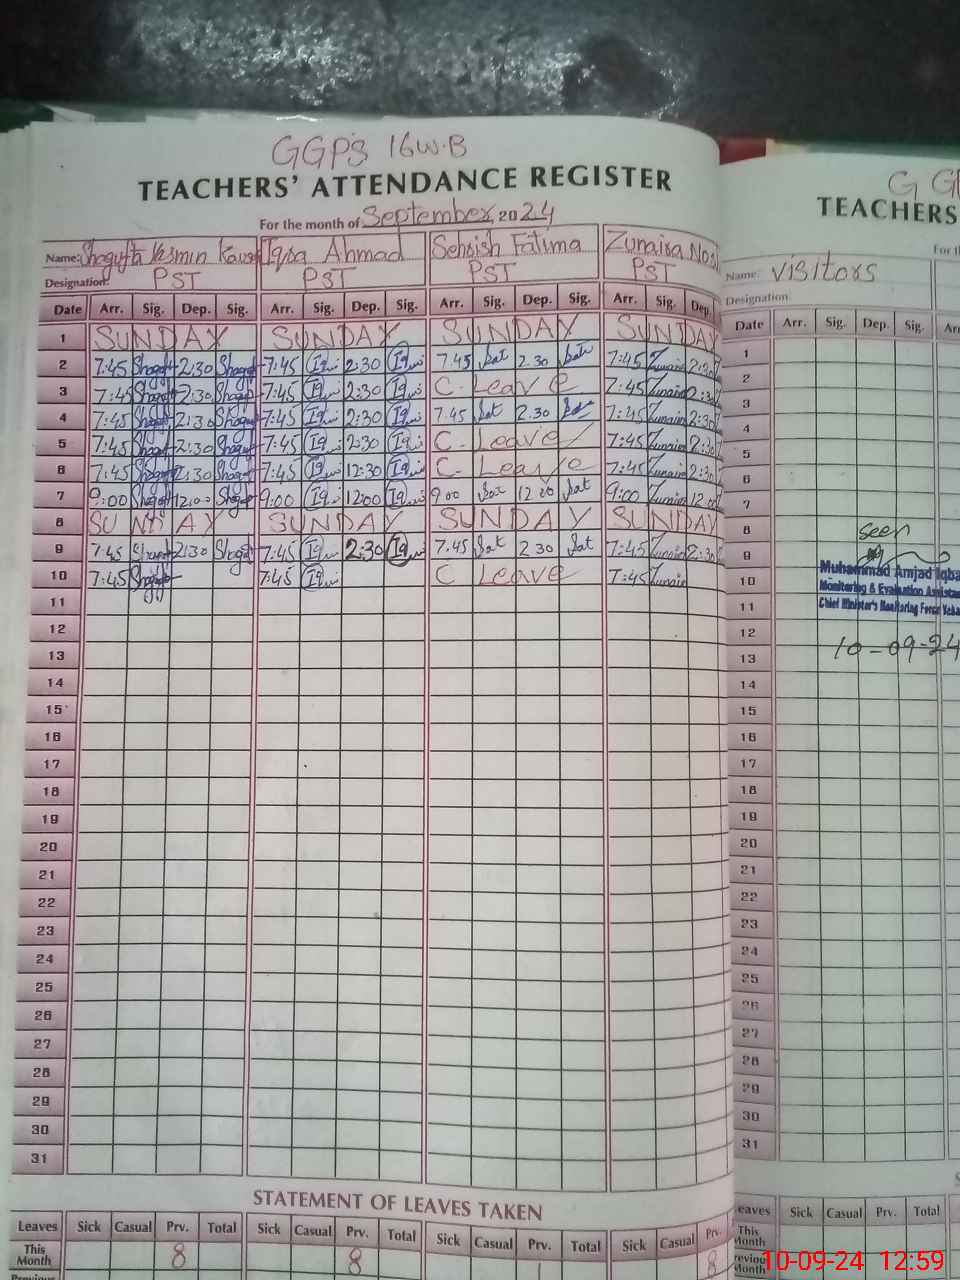 GGPS 16W.B
TEACHERS' ATTENDANCE REGISTER
For the month of September, 2024
Name: Shagufta Yasmin Iqra Ahmad Sehrish Fatima Zunaira
Designation: PST PST PST PST
Date Arr. Sig. Dep. Sig. Arr. Sig. Dep. Sig. Arr. Sig. Dep. Sig. Arr. Sig. Dep.
1 SUNDAY SUNDAY SUNDAY SUNDAY
2 7:45 2:30 7:45 2:30 7.45 2.30 7:45 2:30
3 7:45 2:30 7:45 2:30 C-Leave 7:45 2:30
4 7:45 2:30 7:45 2:30 7.45 2.30 7:45 2:30
5 7:45 2:30 7:45 2:30 C-Leave 7:45 2:30
6 7:45 2:30 7:45 12:30 C-Leave 7:45 2:30
7 9:00 12:00 9:00 12:00 9.00 12.00 9:00 12:00
8 SUNDAY SUNDAY SUNDAY SUNDAY
9 7:45 2:30 7:45 2:30 7.45 2.30 7:45 2:30
10 7:45 7:45 C Leave 7:45
11
12
13
14
15
16
17
18
19
20
21
22
23
24
25
26
27
28
29
30
31
STATEMENT OF LEAVES TAKEN
Leaves Sick Casual Prv. Total Sick Casual Prv. Total Sick Casual Prv. Total Sick Casual Prv.
This Month 8 8 8
G
TEACHERS
Name: visitors
Designation
Date Arr. Sig. Dep. Sig.
1
2
3
4
5
6
7
8 seen
9
Muhammad Amjad Iqba
10 Monitoring & Evaluation Assistan
11 Chief Minister's Monitoring Force
12
13 10-09-24
14
15
16
17
18
19
20
21
22
23
24
25
26
27
28
29
30
31
eaves Sick Casual Prv. Total
This
Month
10-09-24 12:59